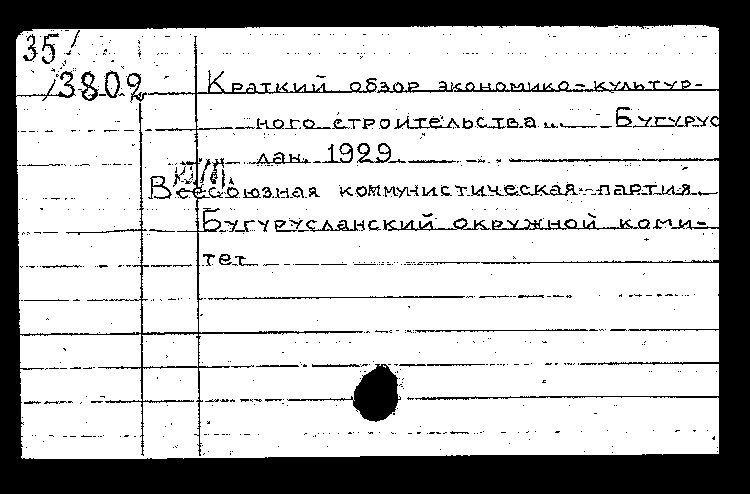 35/
/3802
Краткий обзор экономико-культур-
ного строительства... Бугурус
лан. 1929
Всесоюзная коммунистическая партия.
Бугурусланский окружной коми-
тет